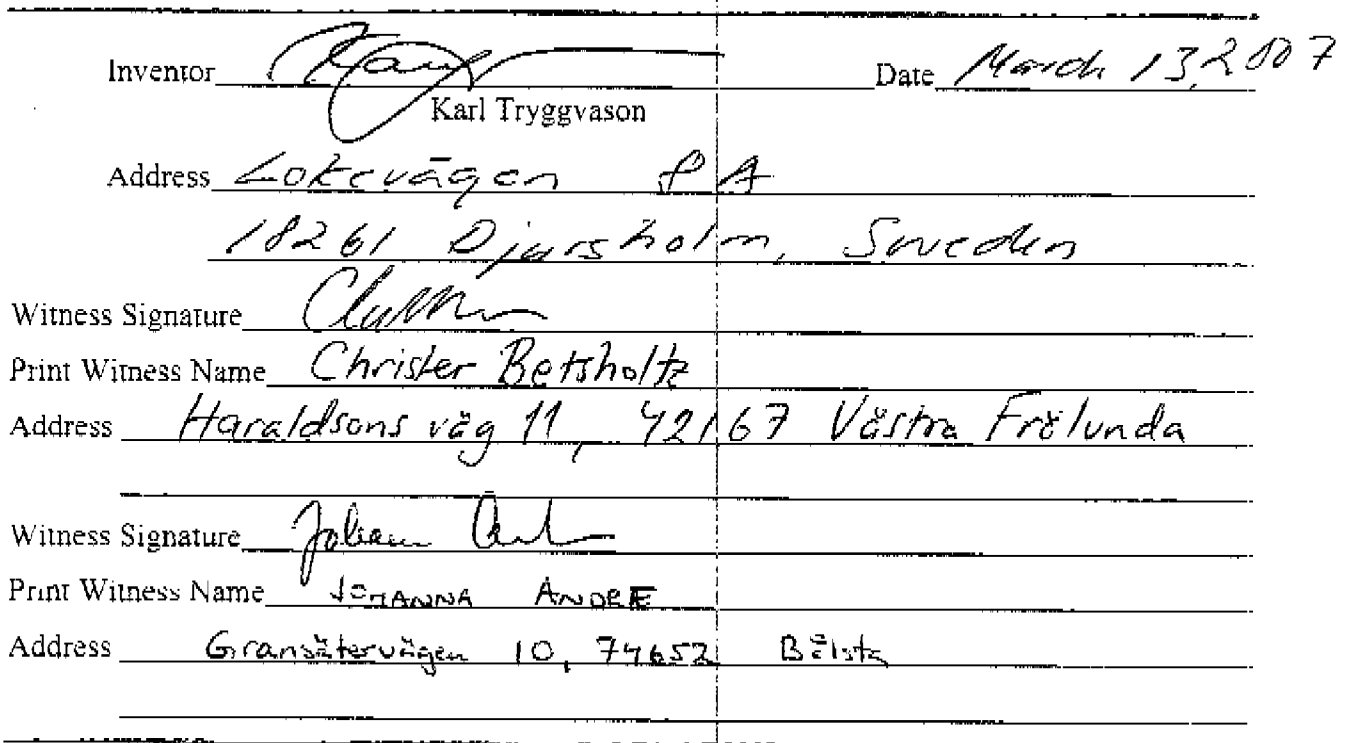 Inventor Date March 13, 2007
Karl Tryggvason
Address Lokevägen 8A
18261 Djursholm, Sweden
Witness Signature
Print Witness Name Christer Betsholtz
Address Haraldsons väg 11, 42167 Västra Frölunda
Witness Signature Johanna
Print Witness Name JOHANNA ANDRÆ
Address Gransätervägen 10, 74652 Bålsta